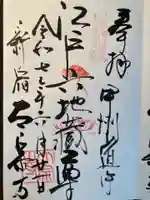 奉拝 甲州道中
江戸六地蔵尊
令和七年六月 日
新宿 太宗寺